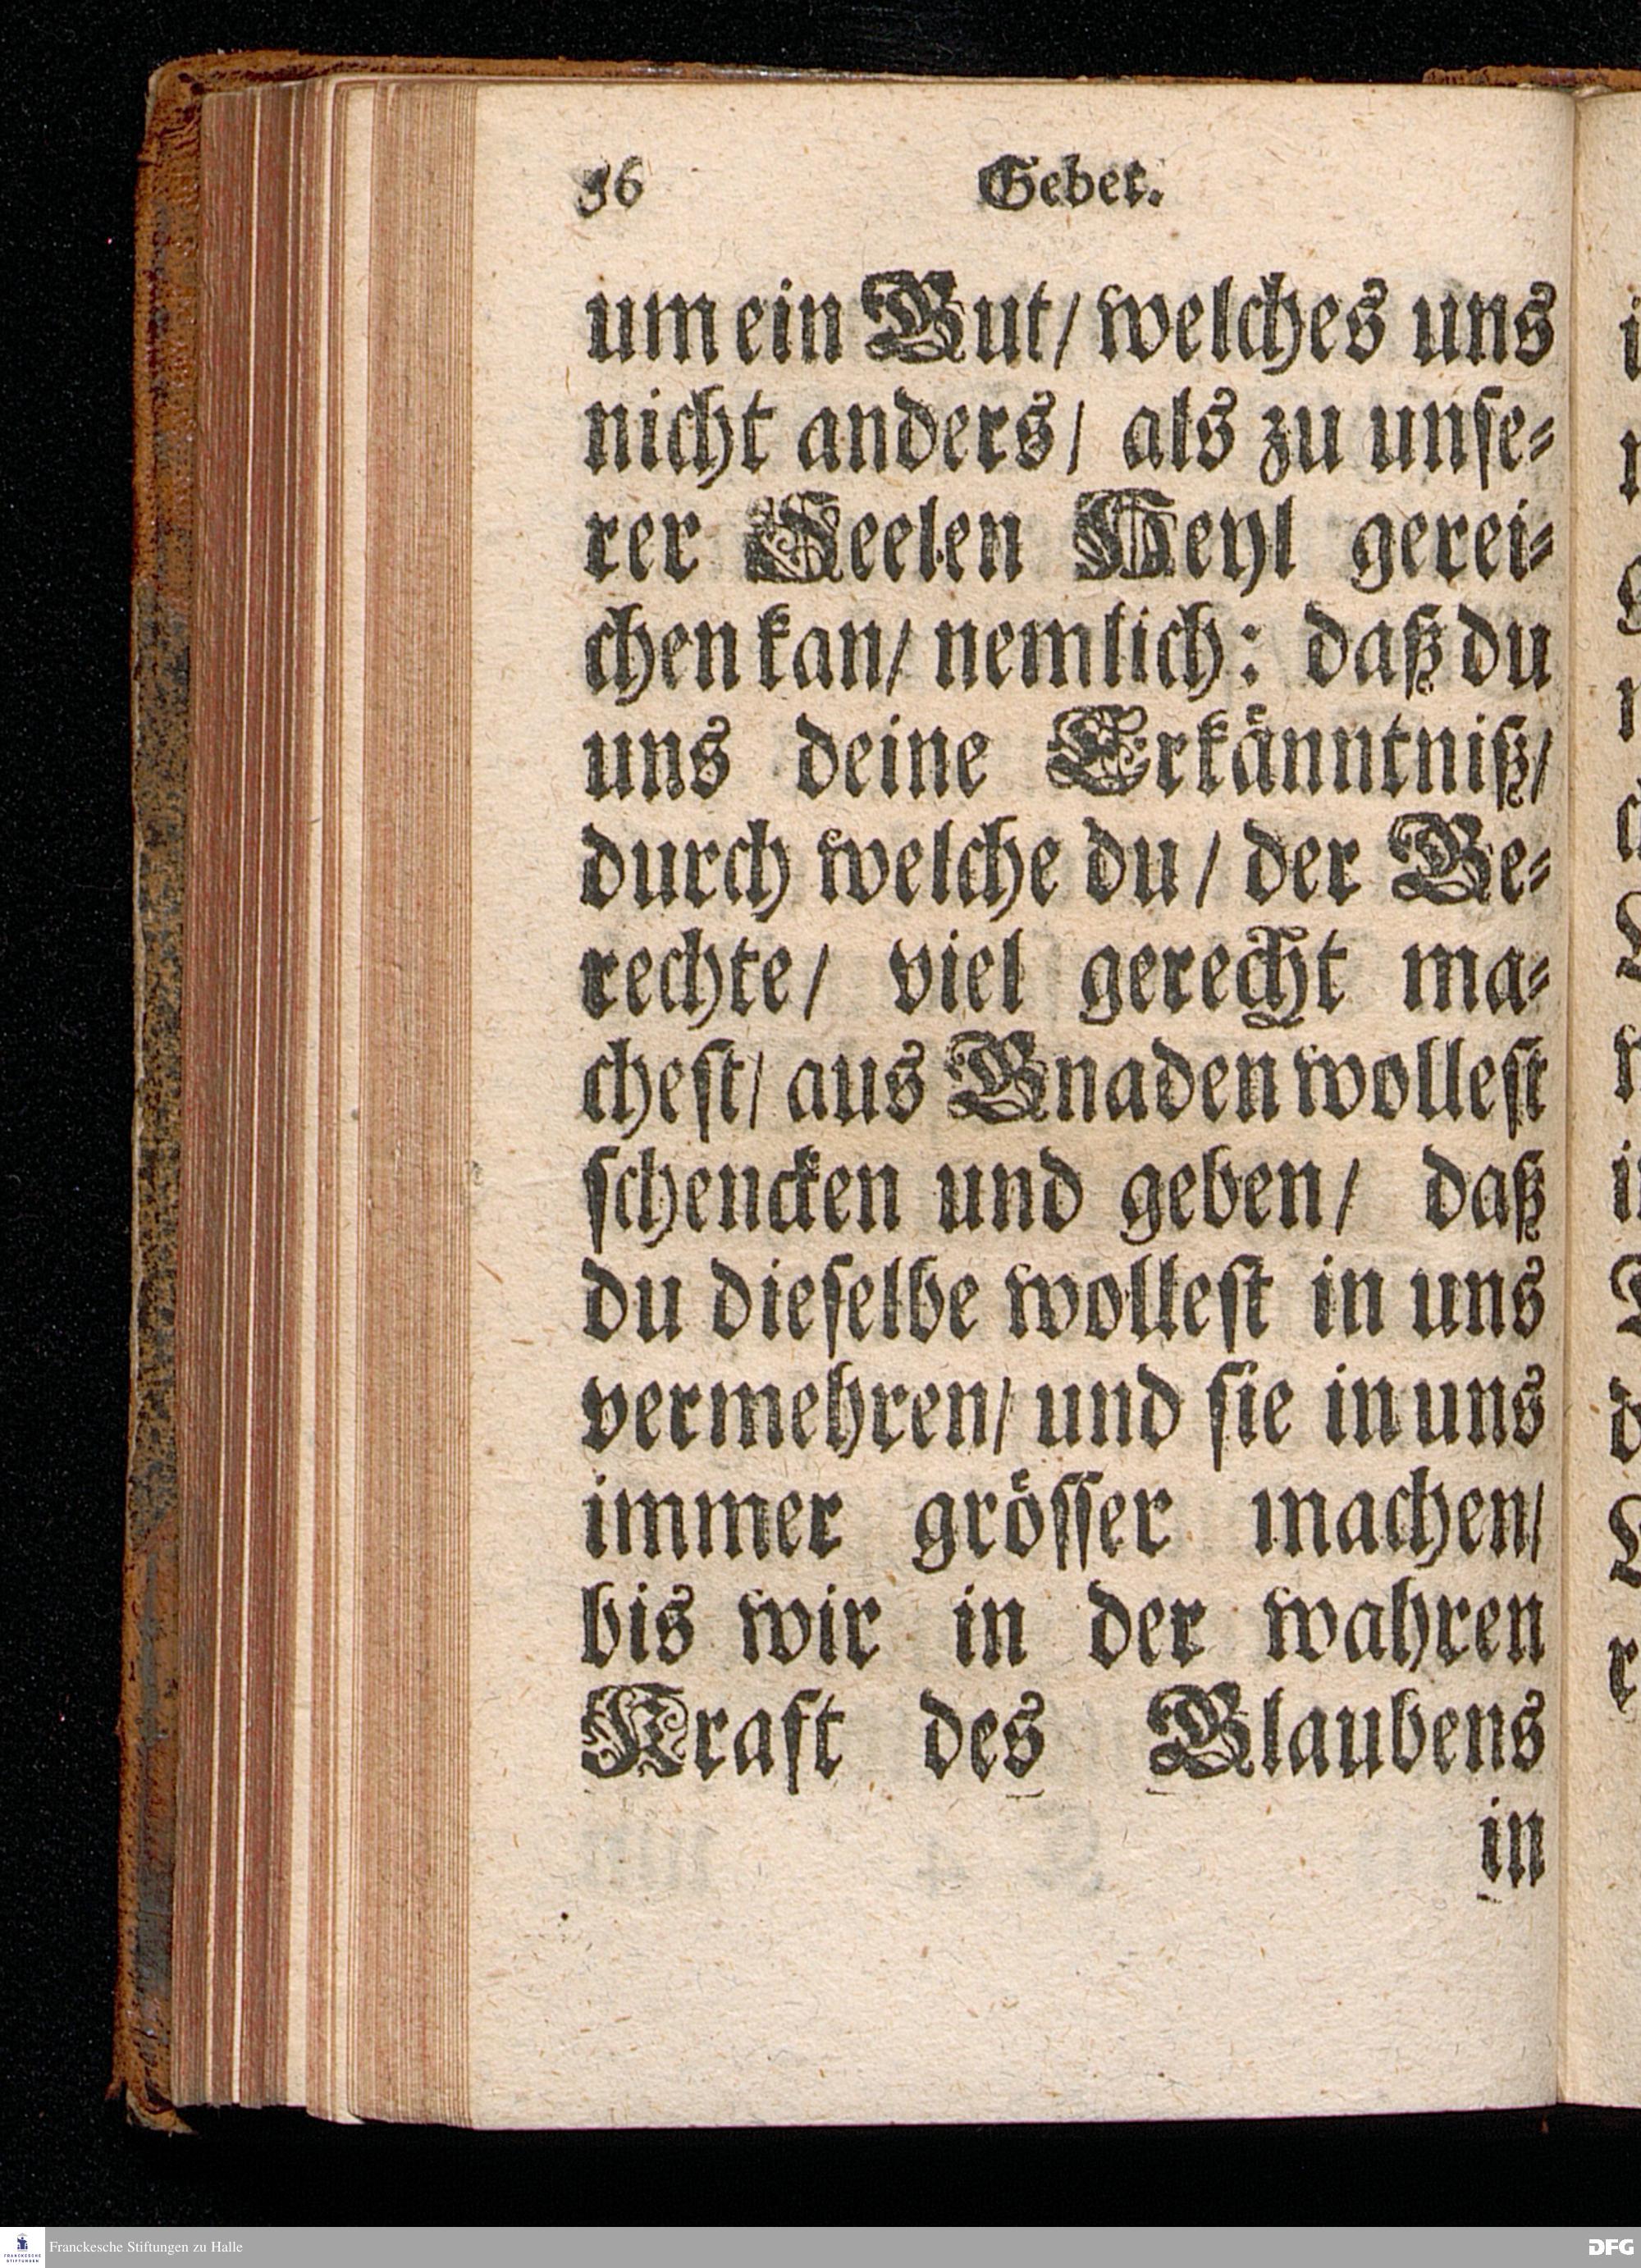 56 Gebet.
um ein Gut/ welches uns
nicht anders/ als zu unse⸗
rer Seelen Heyl gerei⸗
chen kan/ nemlich: daß du
uns deine Erkänntniß/
durch welche du/ der Ge⸗
rechte/ viel gerecht ma⸗
chest/ aus Gnaden wollest
schencken und geben/ daß
du dieselbe wollest in uns
vermehren/ und sie in uns
immer grösser machen/
bis wir in der wahren
Kraft des Glaubens
in
FRANCKESCHE STIFTUNGEN
Franckesche Stiftungen zu Halle
DFG